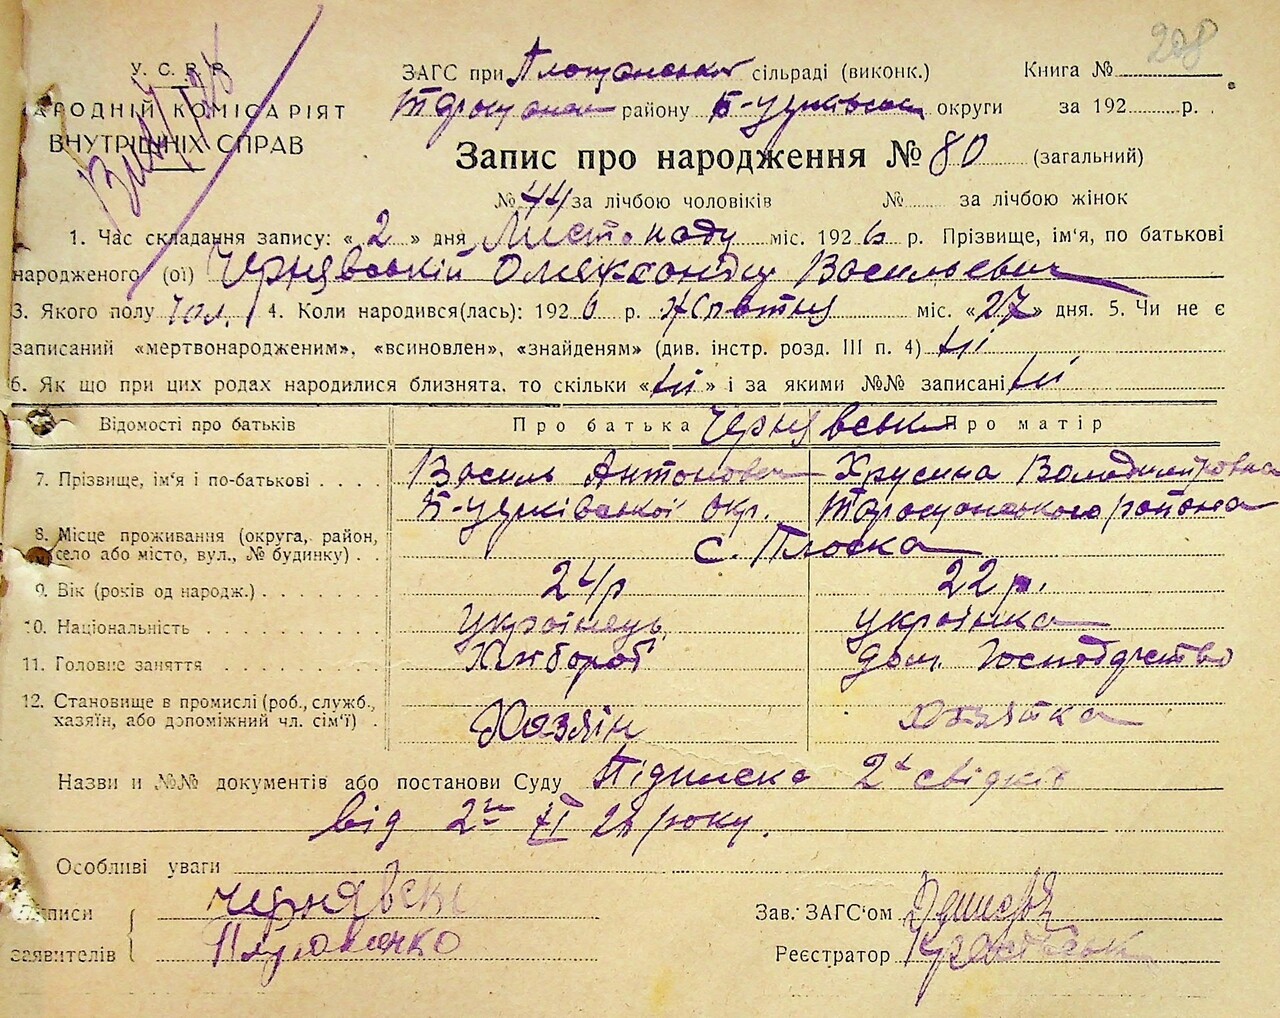 208
У. С. Р. Р.
НАРОДНІЙ КОМІСАРІЯТ
ВНУТРІШНІХ СПРАВ
ЗАГС при Плосканській сільраді (виконк.) Книга №
району Б-Церківськ округи за 192 р.
Запис про народження № 80 (загальний)
№ 44 за лічбою чоловіків № за лічбою жінок
1. Час складання запису: « 2 » дня Листопаду міс. 1926 р. Прізвище, ім'я, по батькові
народженого (ої) Чернявський Олександр Васильевич
3. Якого полу чол. 4. Коли народився(лась): 1926 р. Жовтня міс. «27» дня. 5. Чи не є
записаний «мертвонародженим», «всиновлен», «знайденям» (див. інстр. розд. III п. 4) ні
6. Як що при цих родах народилися близнята, то скільки «ні» і за якими №№ записані ні
Відомості про батьків Про батька Чернявськ Про матір
7. Прізвище, ім'я і по-батькові Василь Антонович Хрусина Володимировна
Б-Церківської окр. Таращанського района
8. Місце проживання (округа, район,
село або місто, вул., № будинку) с. Плоска
9. Вік (років од народж.) 24р 22р.
10. Національність Українець Українка
11. Головне заняття Хлібороб дом. Господарство
12. Становище в промислі (роб., служб.,
хазяїн, або допоміжний чл. сім'ї) Хазяїн Хазяйка
Назви и №№ документів або постанови Суду Підписка 2х свідків
від 2го XI 26 року.
Особливі уваги
Підписи Чернявск Зав. ЗАГС'ом
заявителів Реєстратор